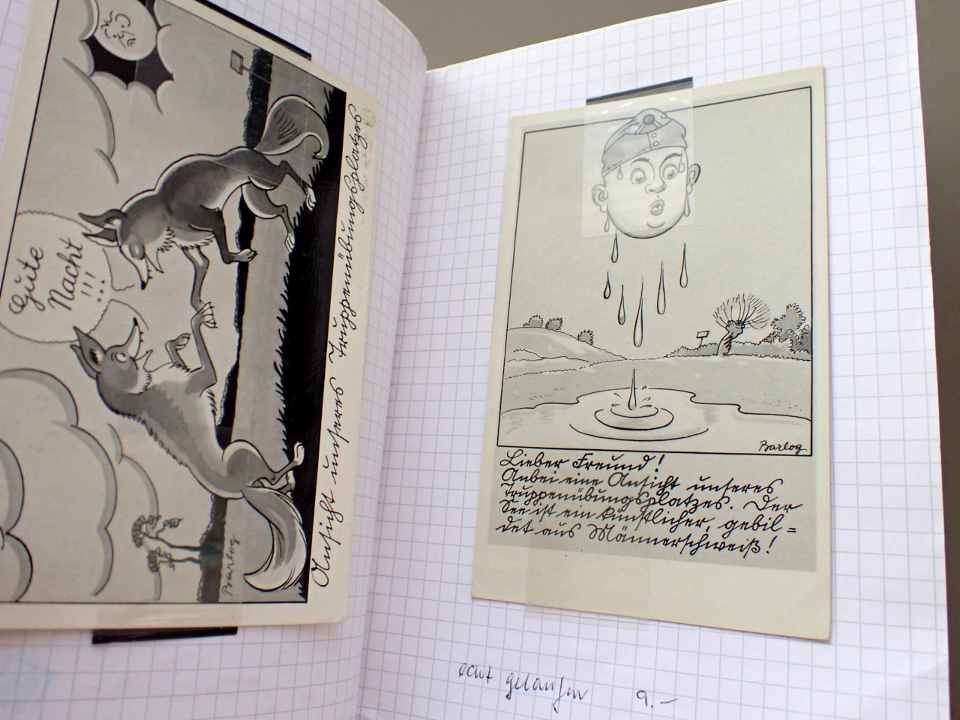 Gute
Nacht
!!!
Barlog
Ansicht unseres Truppenübungsplatzes
Barlog
Lieber Freund!
Anbei eine Ansicht unseres
Truppenübungsplatzes. Der
See ist ein künstlicher, gebil=
det aus Männerschweiß!
echt gelaufen 9.–